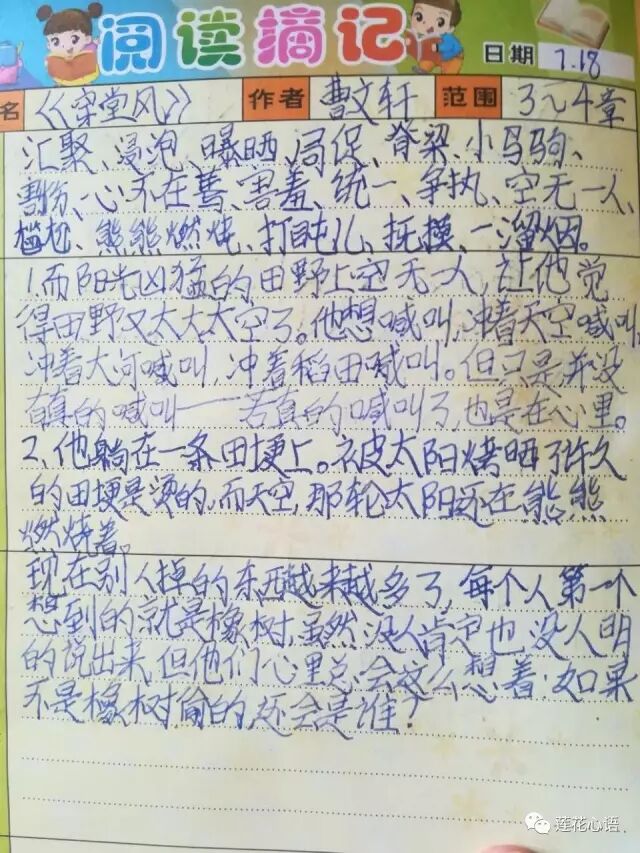 阅读摘记
日期 7.18
名 《穿堂风》 作者 曹文轩 范围 3~4章
汇聚、浸泡、曝晒、局促、脊梁、小马驹、
、心不在蔫、害羞、统一、争执、空无一人、
尴尬、熊熊燃烧、打盹儿、抚摸、一溜烟。
1.而阳光凶猛的田野上空无一人,让他觉
得田野又太大太空了。他想喊叫,冲着天空喊叫,
冲着大河喊叫,冲着稻田喊叫。但只是并没
有真的喊叫——若真的喊叫了,也是在心里。
2、他躺在一条田埂上。被太阳烤晒了许久
的田埂是烫的,而天空,那轮太阳还在熊熊
燃烧着。
现在别人掉的东西越来越多了,每个人第一个
想到的就是橡树,虽然没人肯定也没人明
的说出来,但他们心里总会这么想着:如果
不是橡树偷的,还会是谁?
莲花心语